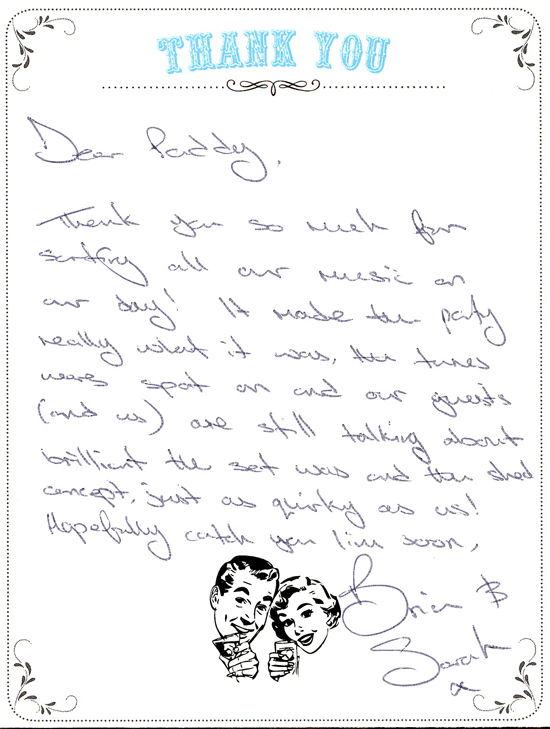 THANK YOU
Dear Paddy,
Thank you so much for
sorting all our music on
our day! It made the party
really what it was, the tunes
were spot on and our guests
(and us) are still talking about
brilliant the set was and the shed
concept, just as quirky as us!
Hopefully catch you live soon,
Brian &
Sarah
x